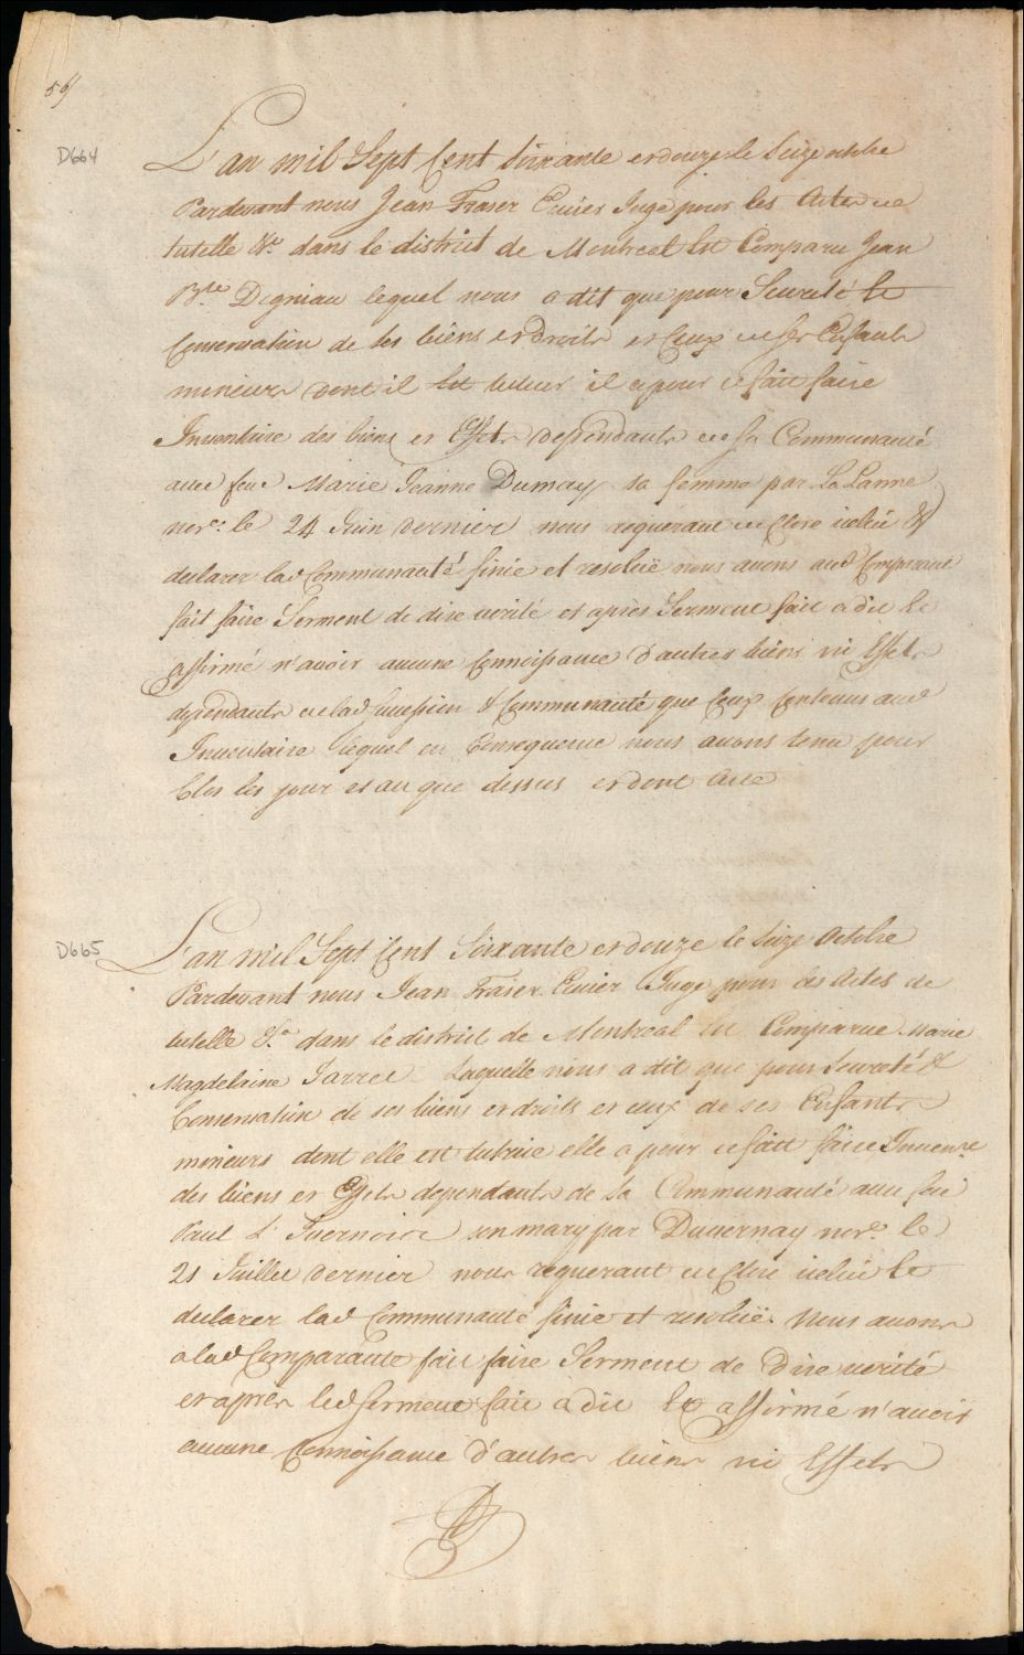 59
D664
L'an mil Sept Cent Soixante et douze le Seize octobre
Pardevant nous Jean Fraser Ecuier Juge pour les Actes de
tutelle &c. dans le district de Montreal Est Comparu Jean
Bte Digniau lequel nous a dit que pour Seureté Et
Conservation de ses biens et droits et Ceux de ses Enfants
mineurs dont il Est tuteur il a pour ce fait faire
Inventaire des biens et Effets dependants de sa Communauté
avec feue Marie Jeanne Dumay sa femme par La Lanne
nore: le 24 Juin dernier nous requerant de Clore icelui &
declarer lad Communauté finie et resoluë nous avons aud Comparant
fait faire Serment de dire verité et après Serment fait a dit Et
affirmé n'avoir aucune Connoissance d'autres biens ni Effets
dependants de lad Succession & Communauté que Ceux Contenus aud
Inventaire lequel en Consequence nous avons tenu pour
Clos les jour et an que dessus et dont Acte
D665
L'an mil Sept Cent Soixante et douze le Seize Octobre
Pardevant nous Jean Fraser Ecuier Juge pour les Actes de
tutelle &c. dans le district de Montreal Est Comparue Marie
Magdelaine Jarret Laquelle nous a dit que pour Seureté &
Conservation de ses biens et droits et ceux de ses Enfants
mineurs dont elle est tutrice elle a pour ce fait faire Invenre
des biens et Effets dependants de la Communauté avec feu
Paul L' son mary par Duvernay nore. le
21 Juillet dernier nous requerant de Clore icelui Et
declarer lad Communauté finie et resoluë. Nous avons
a lad Comparante fait faire Serment de Dire verité
et après led Serment fait a dit Et affirmé n'avoir
aucune Connoissance d'autres biens ni Effets